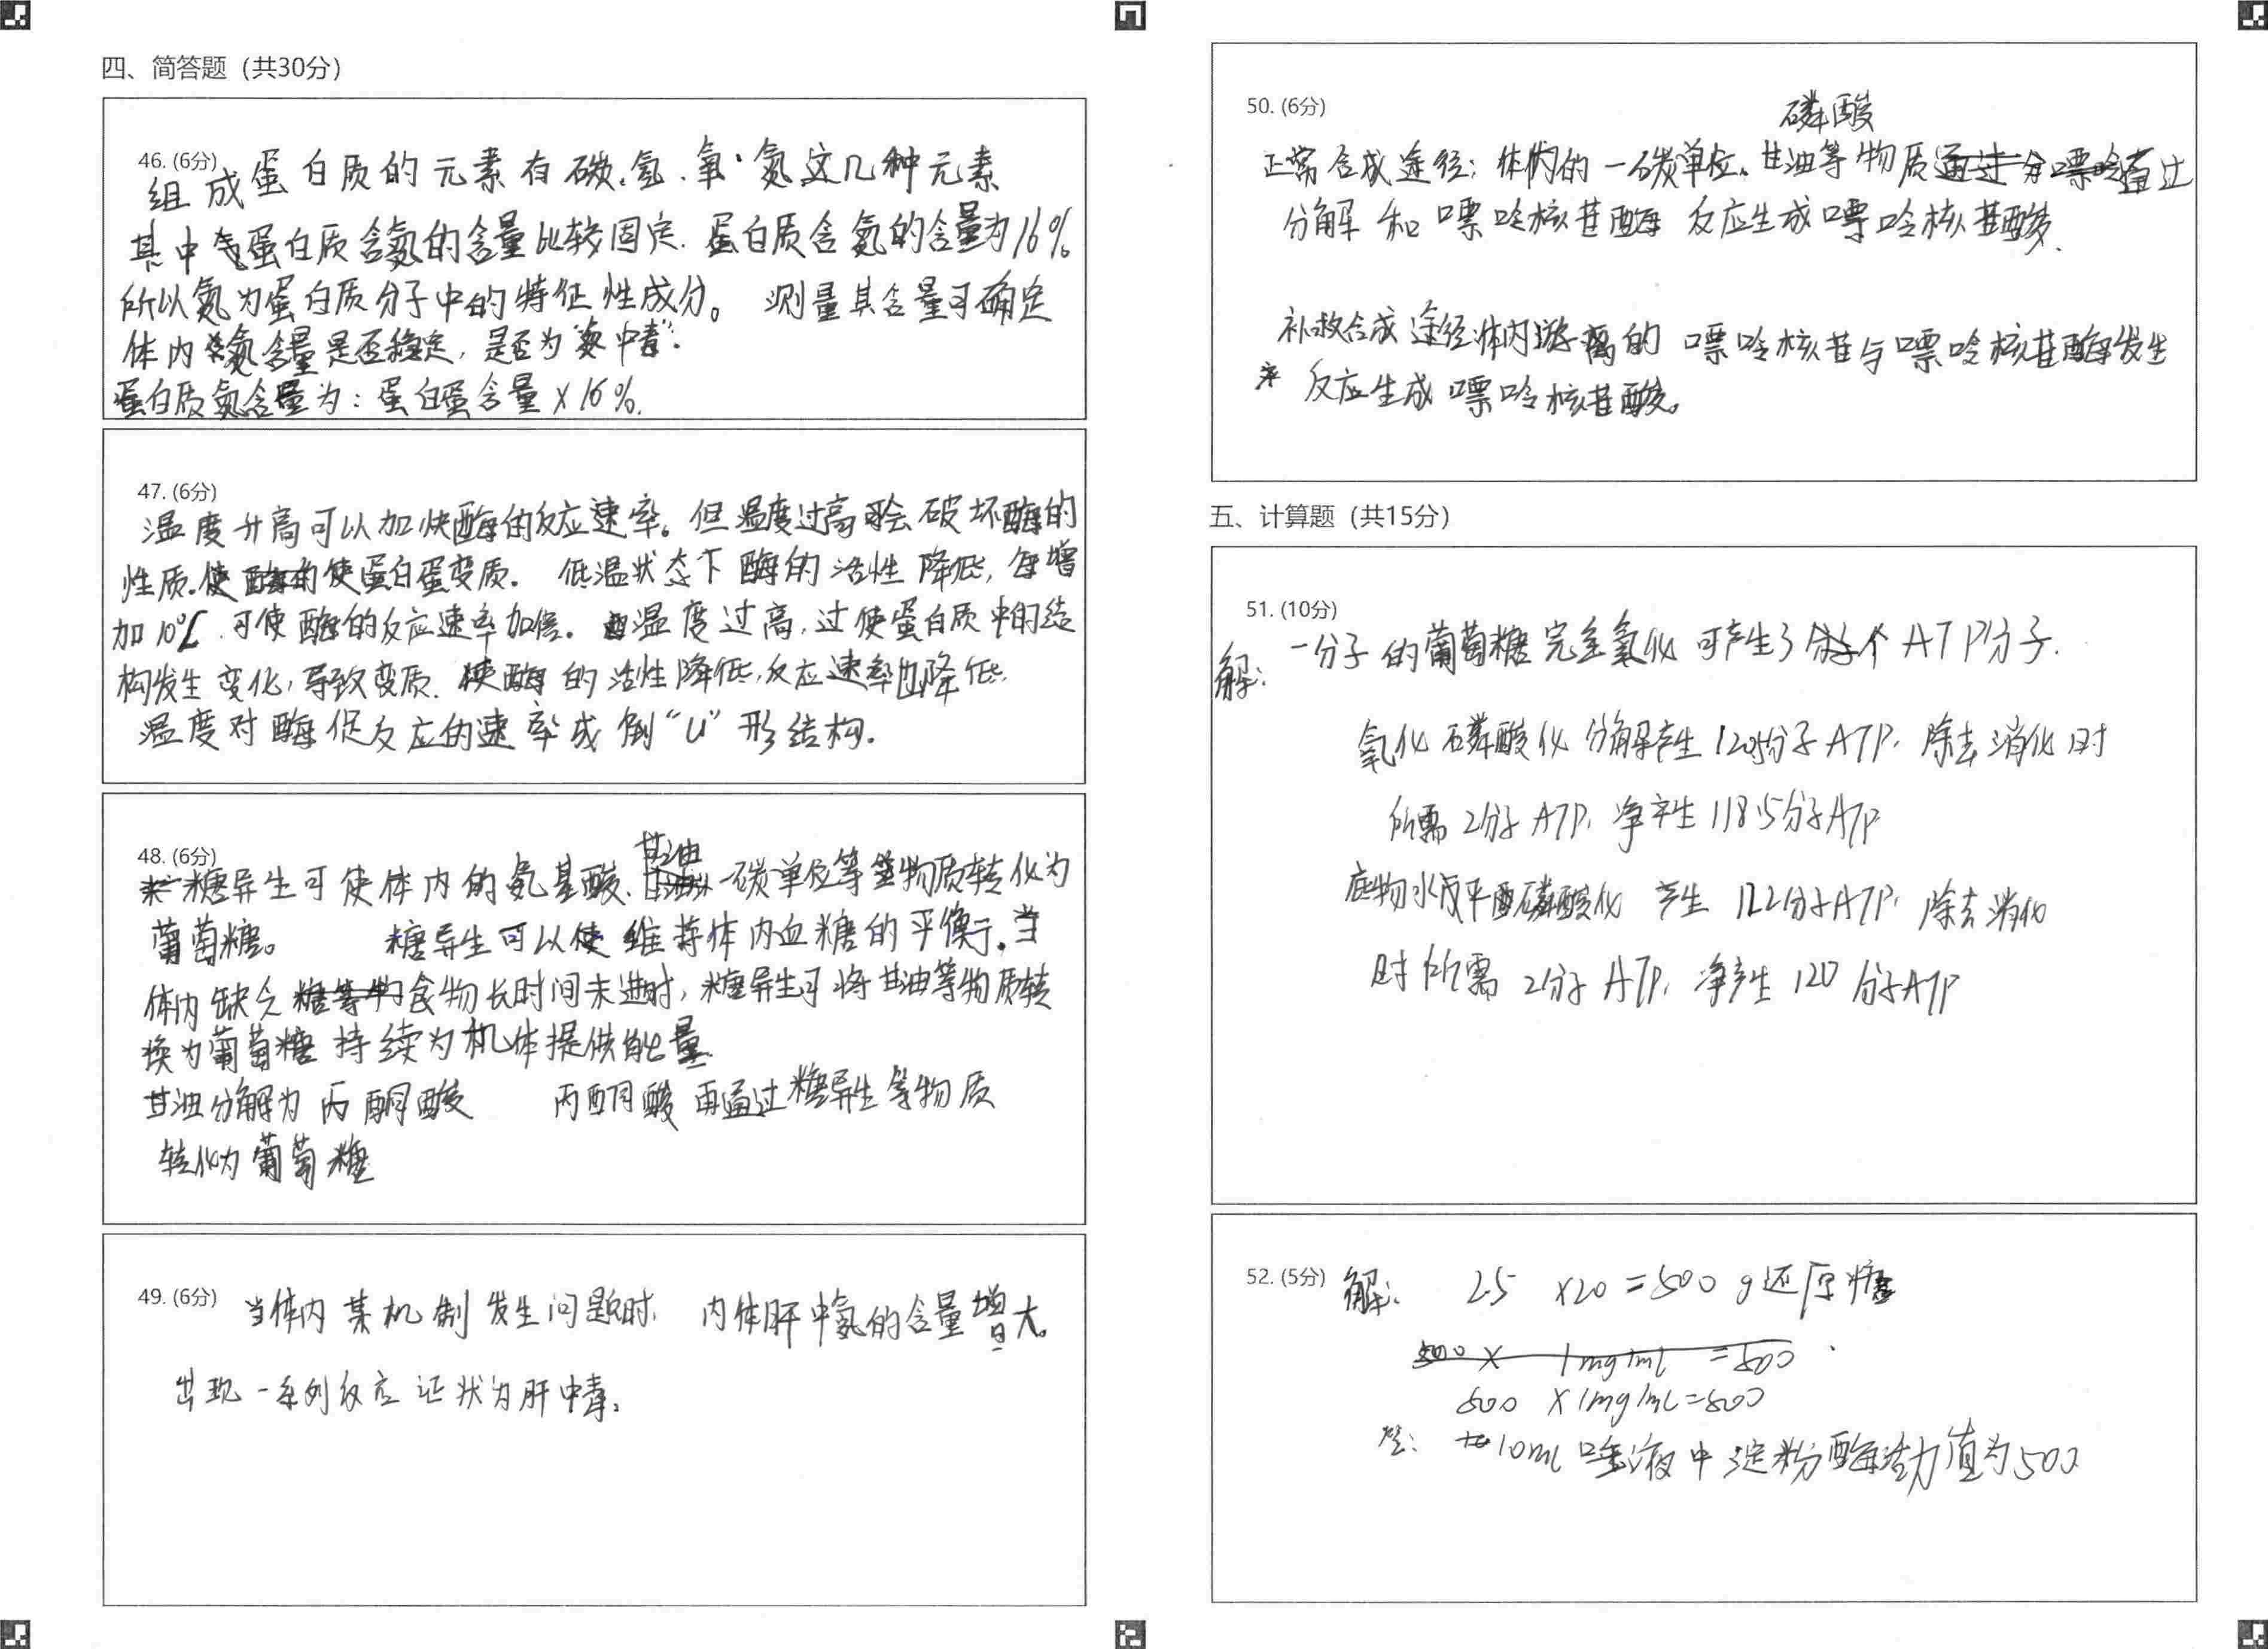 四、简答题（共30分）
46. (6分)
组成蛋白质的元素有碳、氢、氧、氮这几种元素
其中蛋白质含氮的含量比较固定. 蛋白质含氮的含量为16%
所以氮为蛋白质分子中的特征性成分。 测量其含量可确定
体内氮含量是否稳定, 是否为“氨中毒”.
蛋白质氮含量为: 蛋白蛋含量×16%.
47. (6分)
温度升高可以加快酶的反应速率。但温度过高会破坏酶的
性质.使蛋白蛋变质. 低温状态下酶的活性降低, 每增
加10℃.可使酶的反应速率加倍。温度过高,过使蛋白质中的结
构发生变化,导致变质. 使酶的活性降低,反应速率也降低.
温度对酶促反应的速率成倒“U”形结构.
48. (6分)
甘油
糖异生可使体内的氨基酸、一碳单位等物质转化为
葡萄糖。 糖异生可以使维持体内血糖的平衡.当
体内缺乏食物长时间未进时, 糖异生可将甘油等物质转
换为葡萄糖持续为机体提供能量.
甘油分解为丙酮酸 丙酮酸再通过糖异生等物质
转化为葡萄糖
49. (6分)
当体内某机制发生问题时, 内体肝中氨的含量增大。
出现一系列反应证状为肝中毒.
50. (6分)
磷酸
正常合成途径: 体内的一碳单位、甘油等物质直过
分解和嘌呤核苷酶反应生成嘌呤核苷酸.
补救合成途径体内游离的嘌呤核苷与嘌呤核苷酶发生
反应生成嘌呤核苷酸。
五、计算题（共15分）
51. (10分)
解: 一分子的葡萄糖完全氧化可产生3个ATP分子.
氧化磷酸化分解产生120.5分子ATP, 除去消化时
所需2分子ATP, 净产生118.5分子ATP
底物水平磷酸化产生122分子ATP, 除去消化
时所需2分子ATP, 净产生120分子ATP
52. (5分)
解: 25 ×20 =500 g还原糖
500 × 1mg/ml =500
500 ×1mg/mL=500
答: 10ml唾液中淀粉酶活力值为500